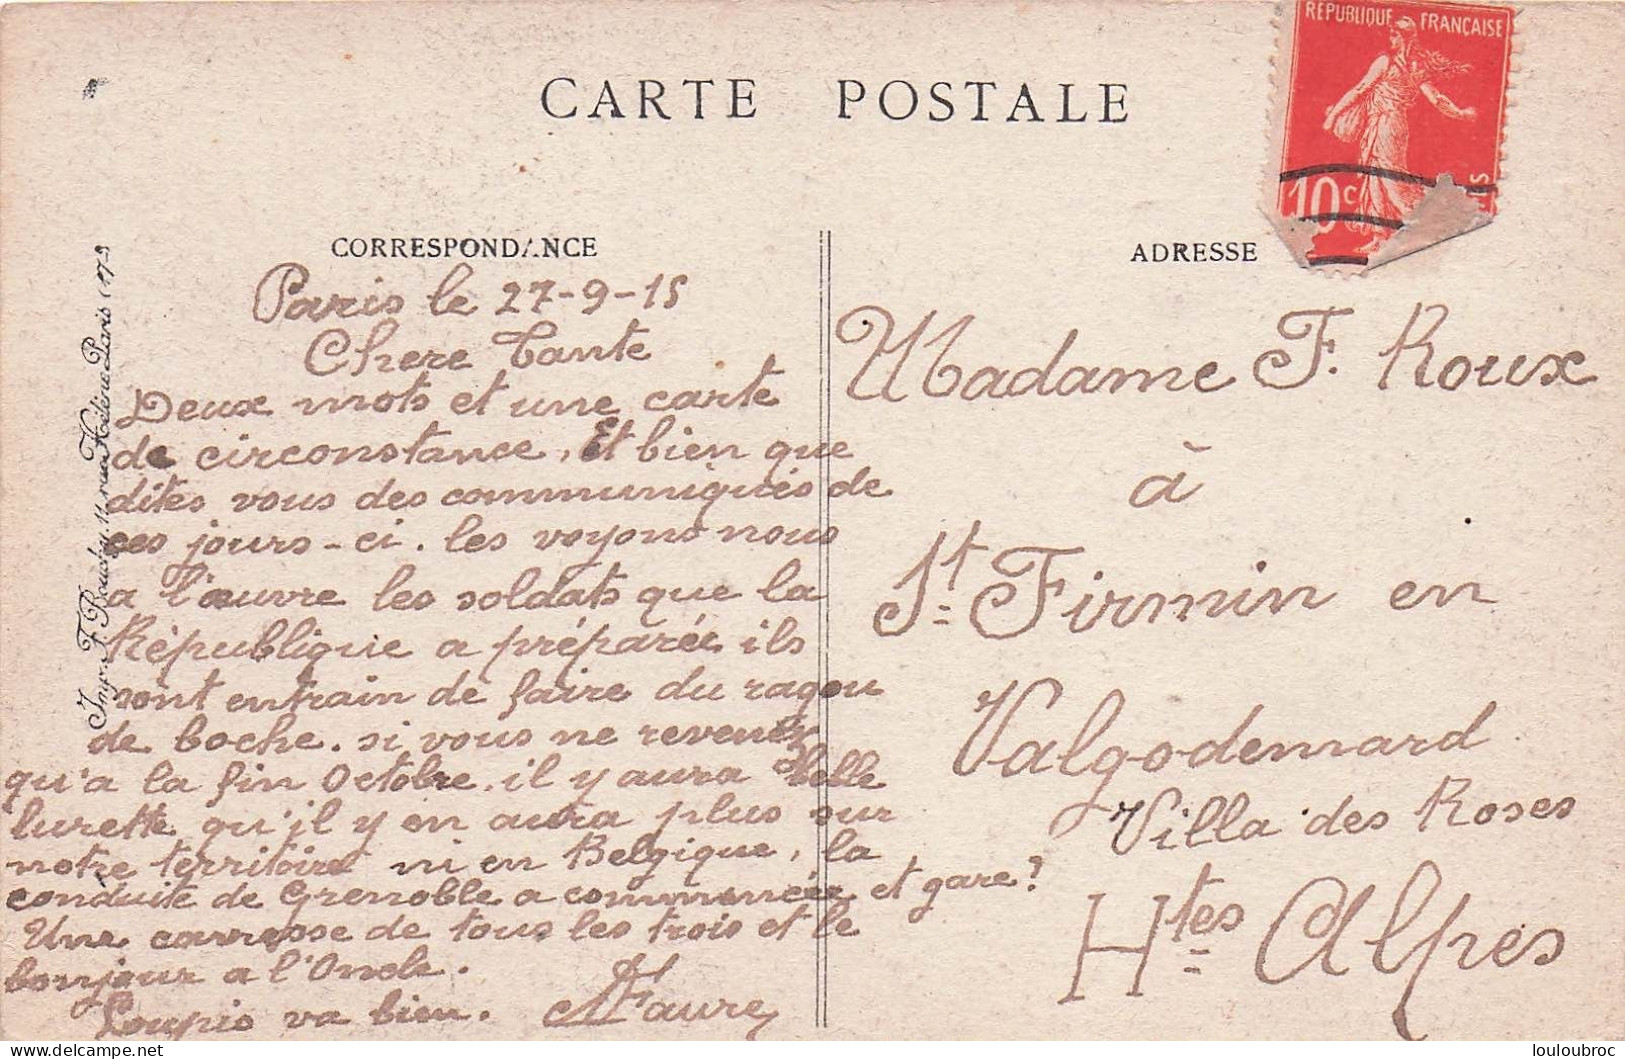 CARTE POSTALE
REPUBLIQUE FRANÇAISE
10c
CORRESPONDANCE
ADRESSE
Paris le 27-9-15
Chere Tante
Deux mots et une carte
de circonstance, Et bien que
dites vous des communiqués de
ces jours-ci. les voyons nous
a l'œuvre les soldats que la
République a préparée ils
sont entrain de faire du ragou
de boche. si vous ne revenez
qu'a la fin Octobre. il y aura belle
lurette qu'il y en aura plus sur
notre territoire ni en Belgique, la
conduite de Grenoble a commencée et gare?
Une carresse de tous les trois et le
bonjour a l'Oncle.
Loupio va bien. Faure
Madame F. Roux
à
St. Firmin en
Valgodemard
Villa des Roses
Htes Alpes
Imp. F. Bouchy. 11, rue Hélène Paris (17e)
delcampe.net
louloubroc